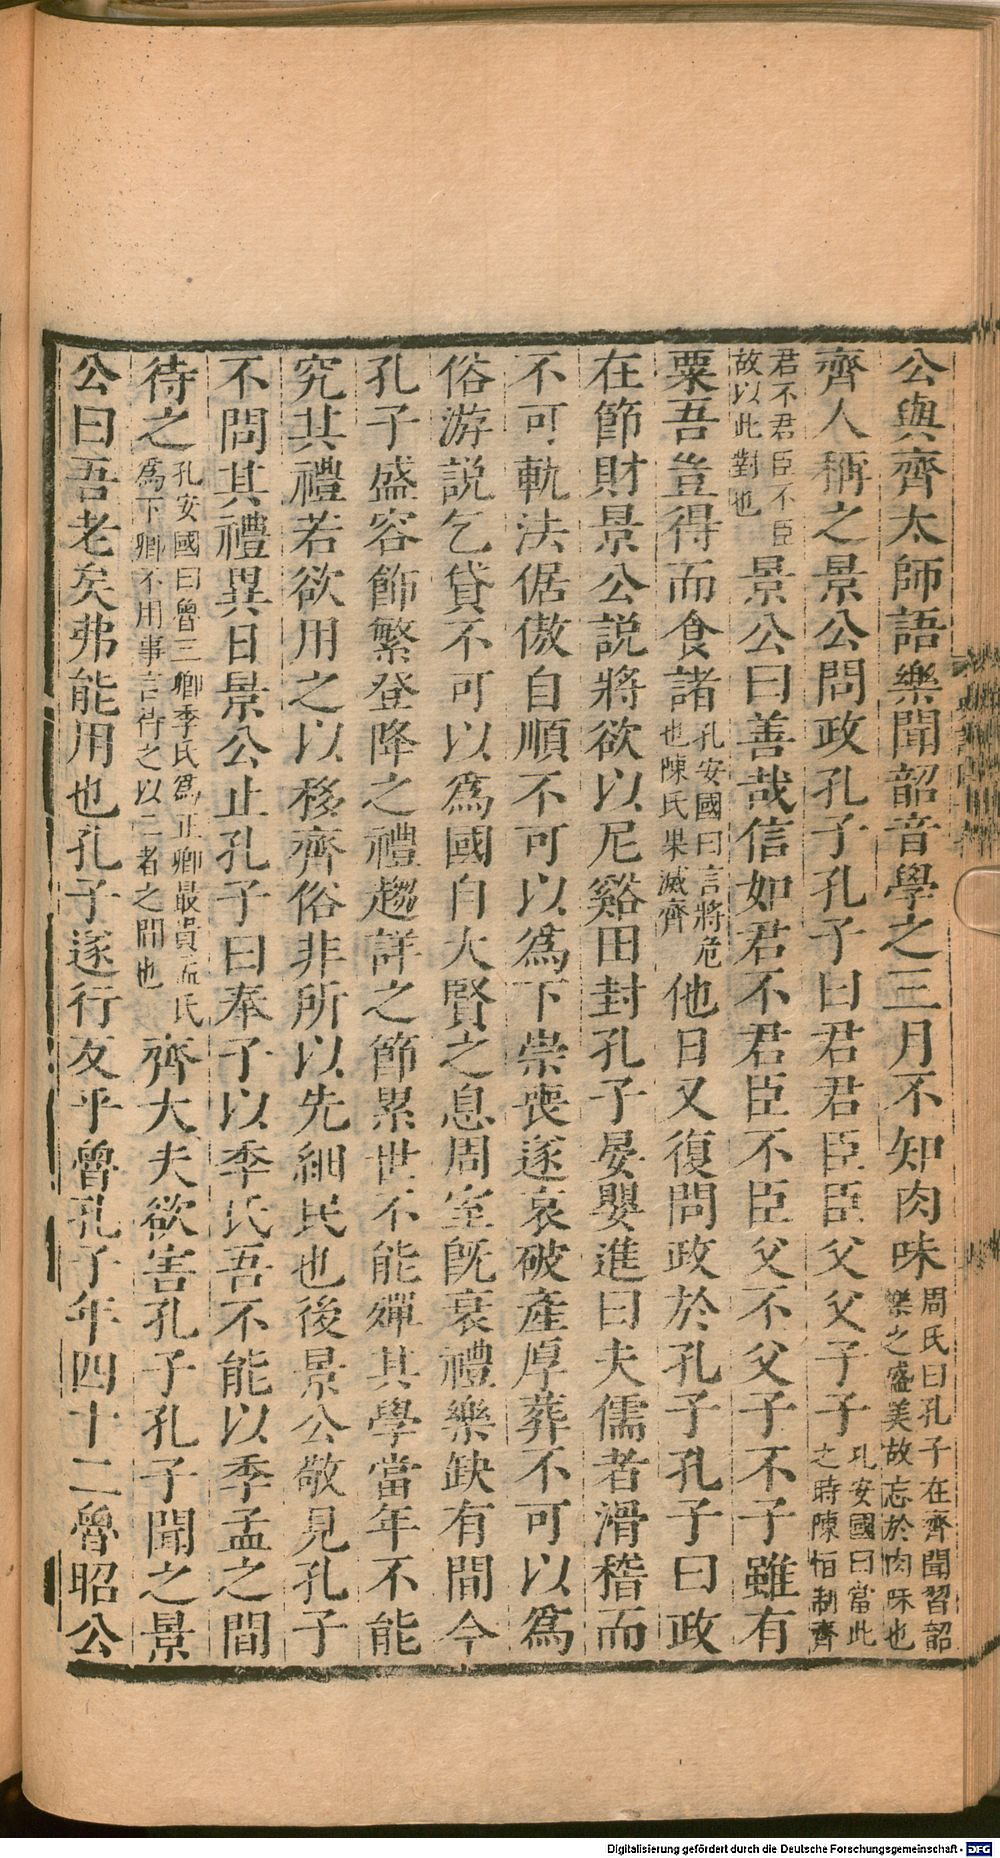 公與齊太師語樂聞韶音學之三月不知肉味周氏曰孔子在齊聞習韶樂之盛美故忘於肉味也
齊人稱之景公問政孔子孔子曰君君臣臣父父子子孔安國曰當此之時陳恒制齊
君不君臣不臣故以此對也景公曰善哉信如君不君臣不臣父不父子不子雖有
粟吾豈得而食諸孔安國曰言將危也陳氏果滅齊他日又復問政於孔子孔子曰政
在節財景公說將欲以尼谿田封孔子晏嬰進曰夫儒者滑稽而
不可軌法倨傲自順不可以為下崇喪遂哀破產厚葬不可以為
俗游說乞貸不可以為國自大賢之息周室既衰禮樂缺有間今
孔子盛容飾繁登降之禮趨詳之節累世不能殫其學當年不能
究其禮若欲用之以移齊俗非所以先細民也後景公敬見孔子
不問其禮異日景公止孔子曰奉子以季氏吾不能以季孟之間
待之孔安國曰魯三卿季氏為正卿最貴孟氏為下卿不用事言待之以二者之間也齊大夫欲害孔子孔子聞之景
公曰吾老矣弗能用也孔子遂行反乎魯孔子年四十二魯昭公
Digitalisierung gefördert durch die Deutsche Forschungsgemeinschaft - DFG